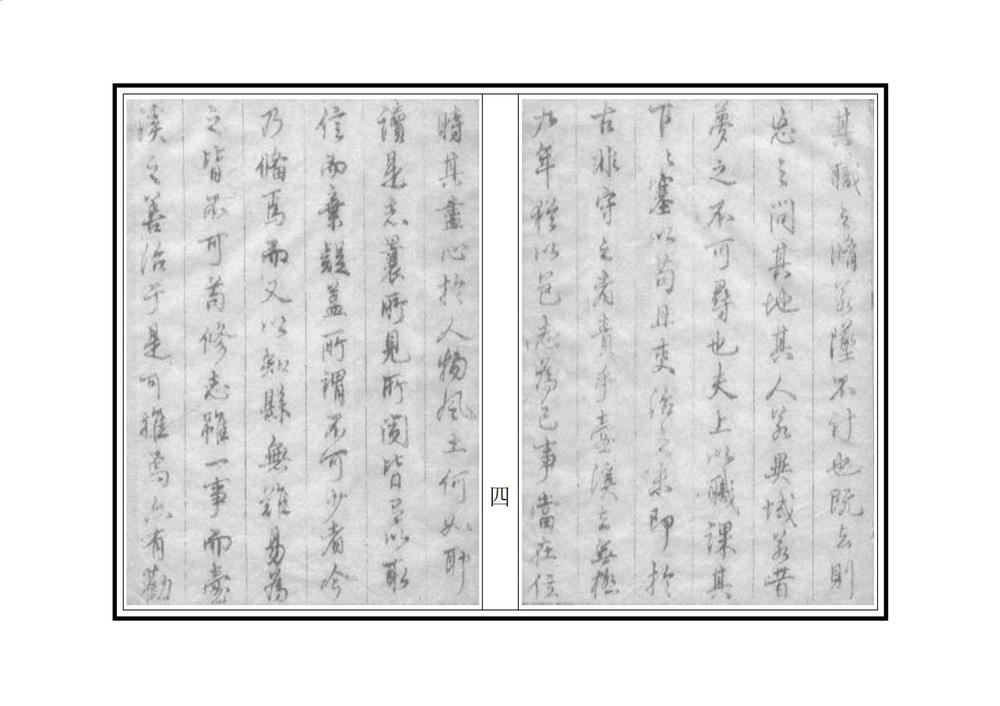 其職之脩若墜不計也既去則
忘之問其地其人若異域若昔
夢之不可尋也夫上以職課其
下下塞以苟且吏治之未即於
古非守之者責乎臺溪去無極
九年猶以邑志為己事當在位
四
時其盡心於人物風土何如耶
讀是志曩所見所聞皆足以取
信而棄疑蓋所謂不可少者今
乃脩焉而又以知縣無難易為
之皆不可苟修志雖一事而臺
溪之善治于是可推焉亦有勸